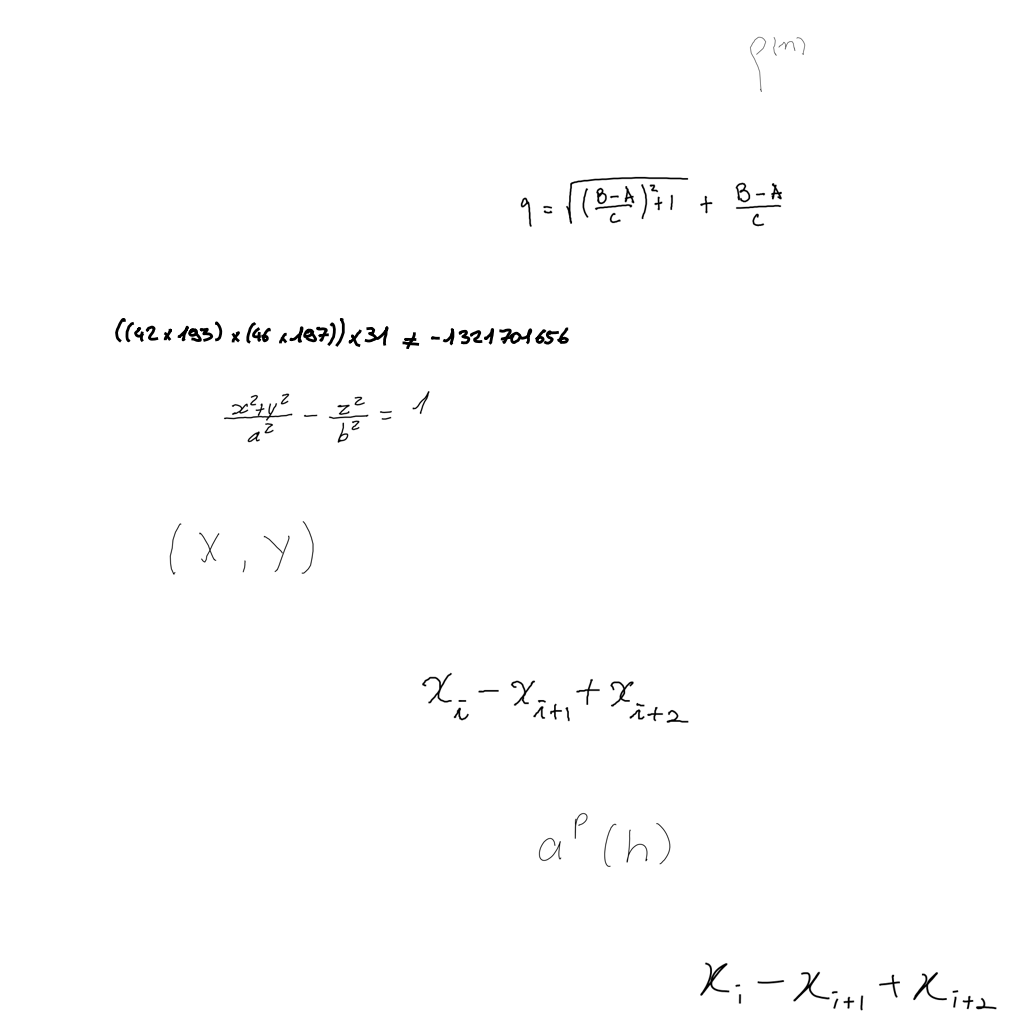 ρ^{(n)}
q = \sqrt{(\frac{B-A}{C})^2+1} + \frac{B-A}{C}
((42 × 193) × (46 × 197)) × 31 ≠ -1321701656
\frac{x^2+y^2}{a^2} - \frac{z^2}{b^2} = 1
(X, Y)
x_i - x_{i+1} + x_{i+2}
a^p(h)
x_i - x_{i+1} + x_{i+2}